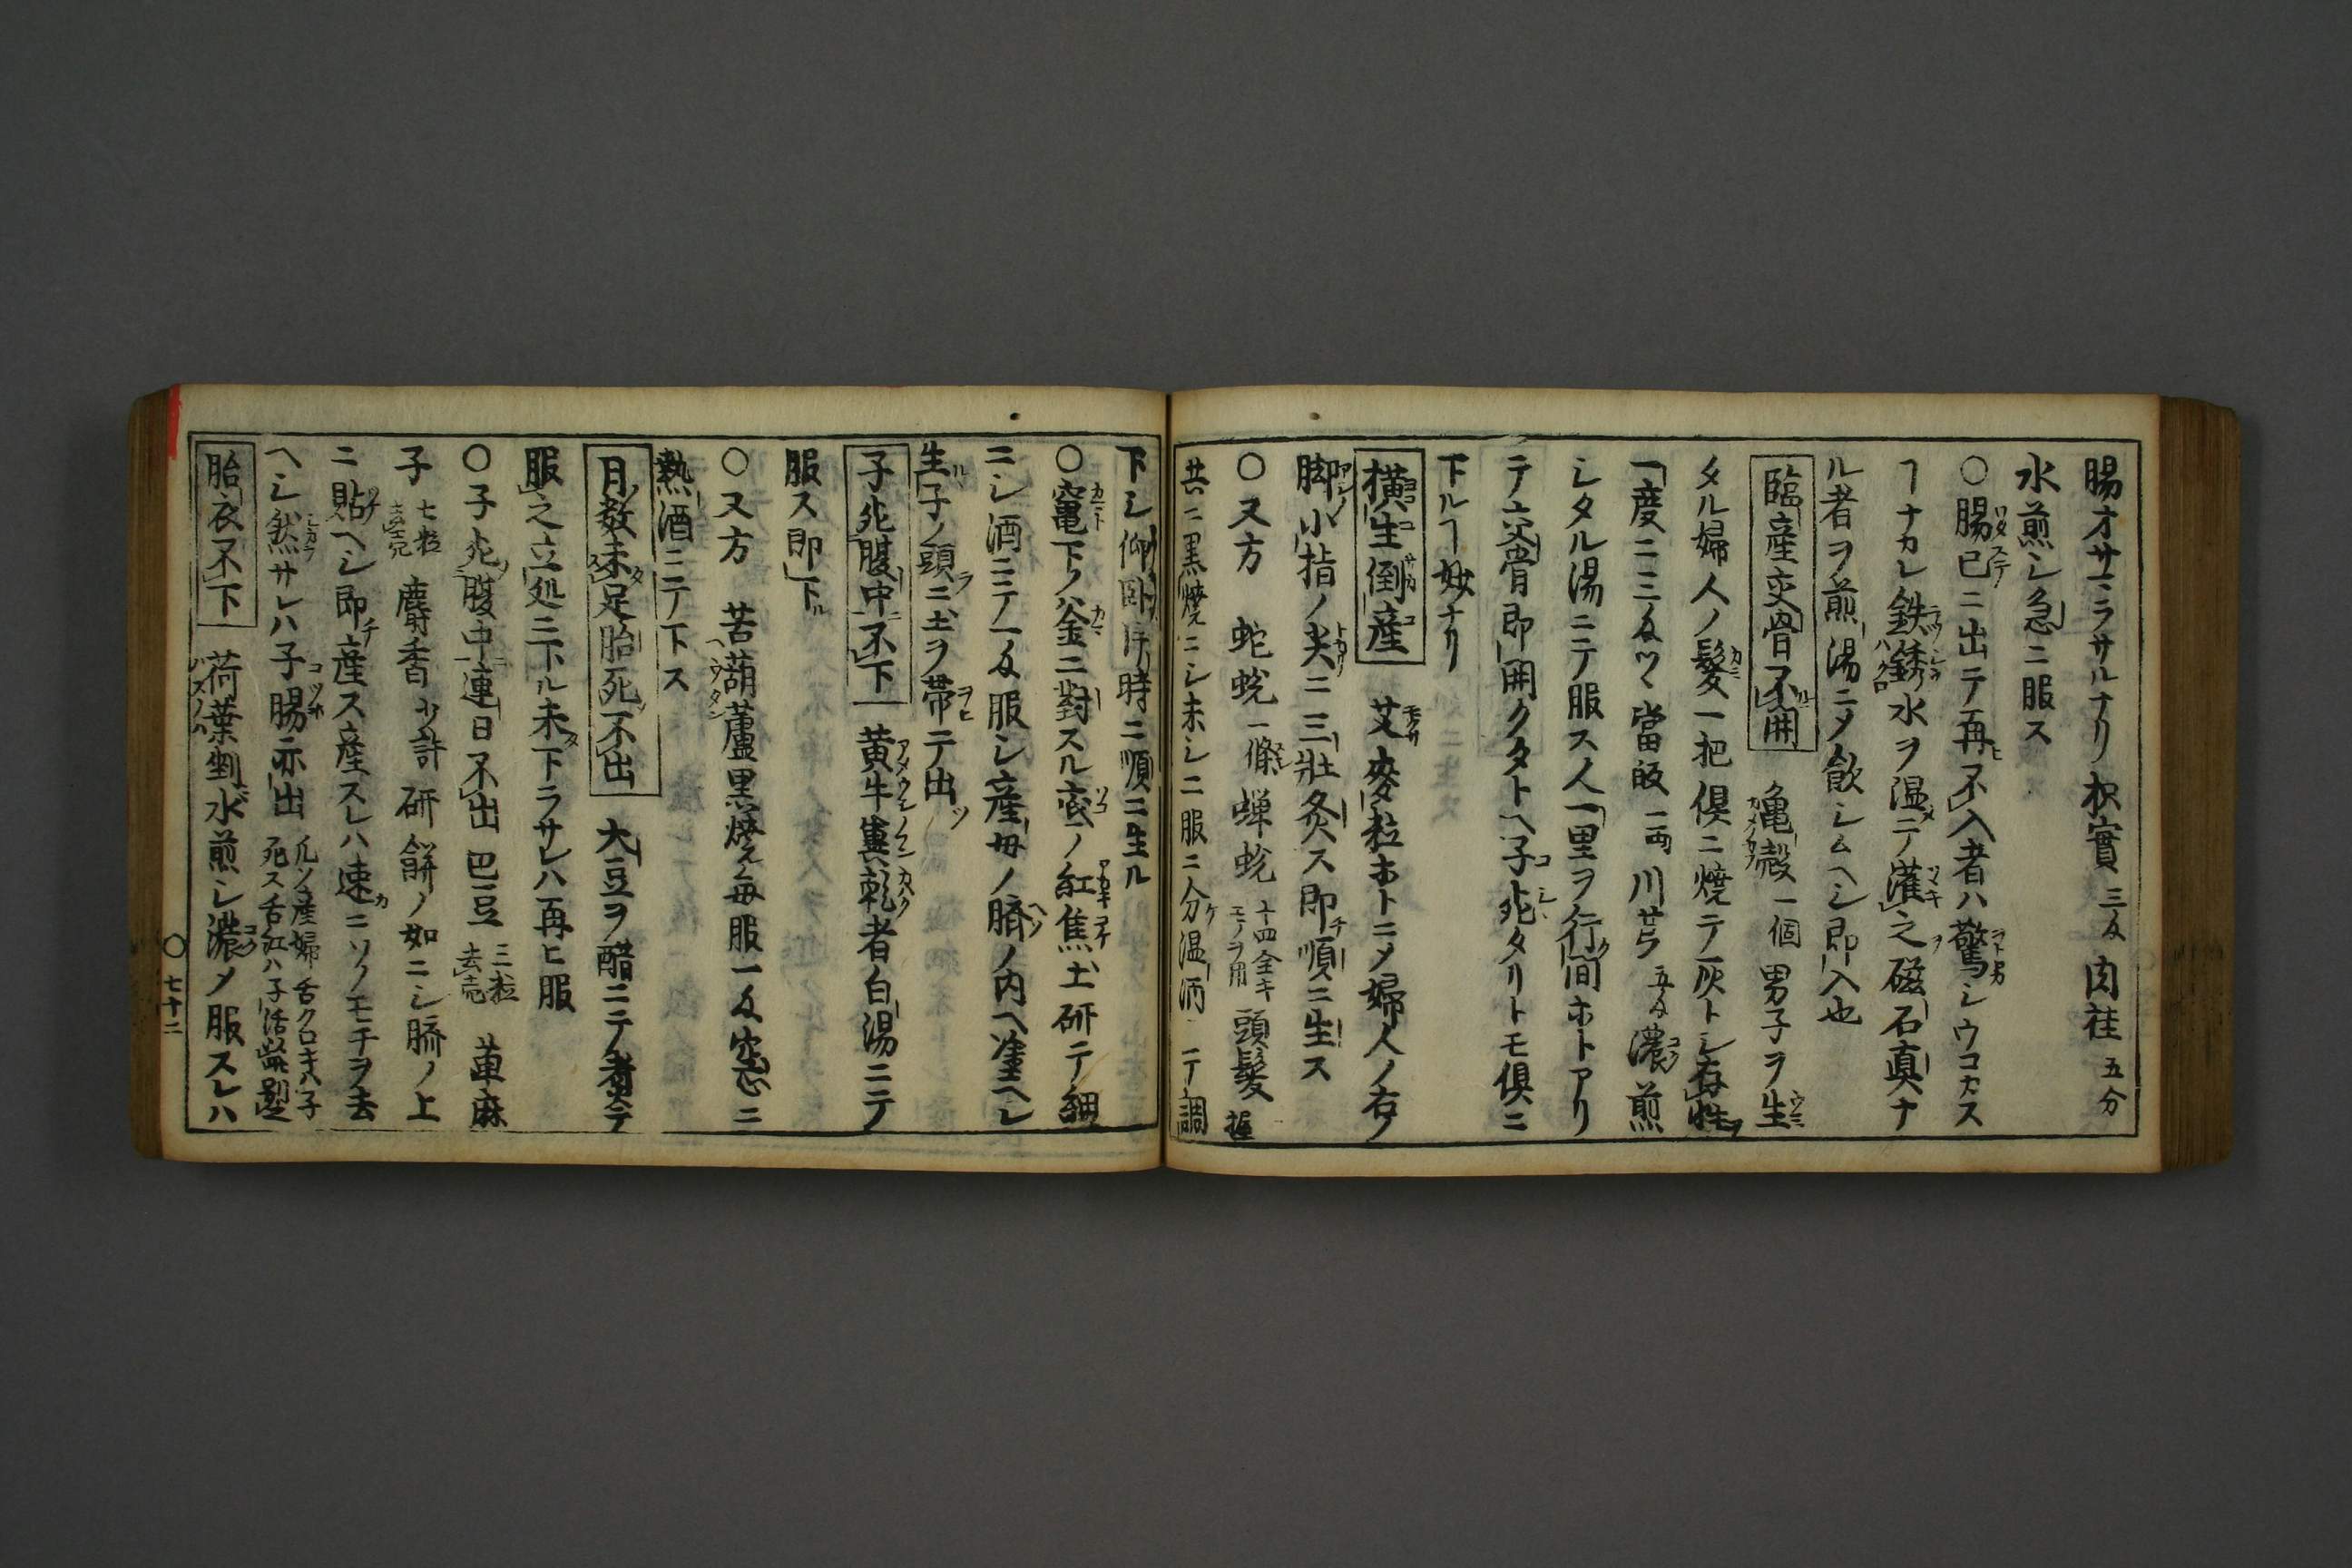 腸オサマラサルナリ 枳實 三匁 肉桂 五分
水煎シ急ニ服ス
〇腸已ニ出テ再不入者ハ驚シウコカス
ヿナカレ鉄銹水ヲ温テ灌之磁石真ナ
ル者ヲ煎湯ニメ飲シムヘシ即入也
臨産交骨不開 亀殻 一個 男子ヲ生
タル婦人ノ髪一把倶ニ焼テ灰トシ存性
一度ニ三匁ツヽ當皈 一両 川芎 五匁 濃煎
シタル湯ニテ服ス人一里ヲ行間ホトアリ
テ交骨即開クタトヘ子死タリトモ倶ニ
下ルヿ妙ナリ
横生倒産 艾麥粒ホトニメ婦人ノ右ノ
脚小指ノ尖ニ三壯灸ス即順ニ生ス
〇又方 蛇蛻 一條 蝉蛻 十四全キモノヲ用 頭髪 一握
共ニ黒焼ニシ末シ二服ニ分温酒ニテ調
下シ仰臥片時ニ順ニ生ル
〇竃下ノ釜ニ對スル底ノ紅焦土研テ細
ニシ酒ニテ一匁服シ産母ノ臍ノ内ヘ塗ヘシ
生子ノ頭ニ土ヲ帯テ出
子死腹中不下 黄牛糞乾者白湯ニテ
服ス即下
〇又方 苦葫蘆黒焼毎服一匁空心ニ
熱酒ニテ下ス
月数未足胎死不出 大豆ヲ醋ニテ煮テ
服之立処ニ下ル未下ラサレハ再ヒ服
〇子死腹中連日不出 巴豆 三粒去壳 萆麻
子 七粒去壳 麝香 少許 研餅ノ如ニシ臍ノ上
ニ貼ヘシ即産ス産スレハ速ニソノモチヲ去
ヘシ然サレハ子腸亦出 凡ソ産婦舌クロキハ子死ス舌紅ハ子活
胎衣不下 荷葉剉水煎シ濃メ服スレハ
〇 七十二